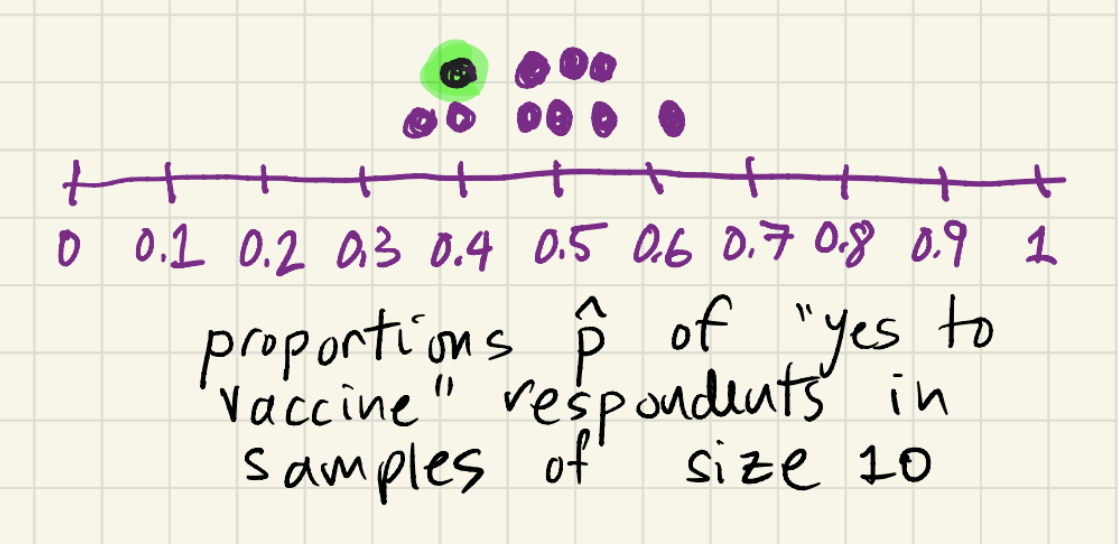 0 0.1 0.2 0.3 0.4 0.5 0.6 0.7 0.8 0.9 1
proportions p̂ of "yes to
vaccine" respondents in
samples of size 10